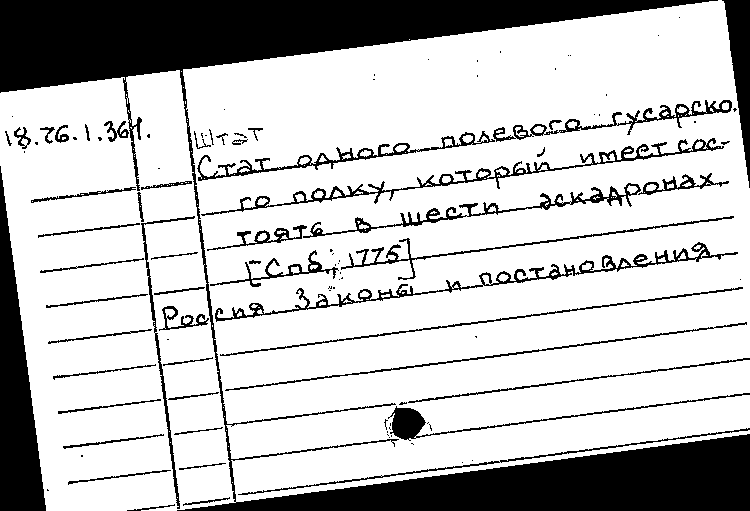 18.26.1.361.
Штат
Стат одного полевого гусарско
го полку, который имеет сос-
тоять в шести эскадронах.
[Спб., 1775]
Россия. Законы и постановления.